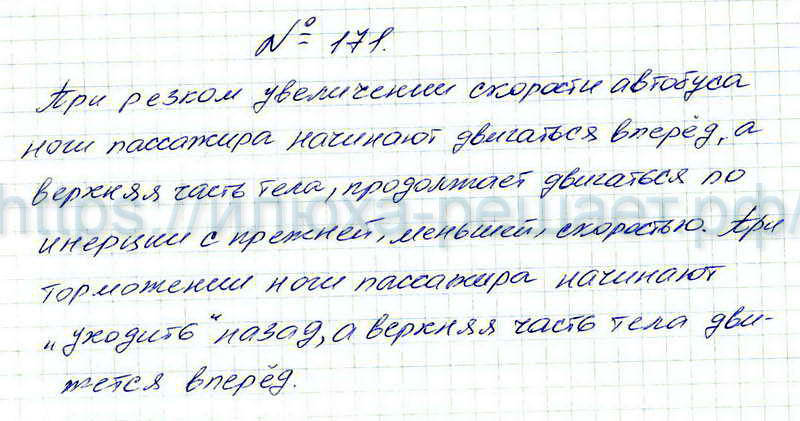 № 171.
При резком увеличении скорости автобуса
ноги пассажира начинают двигаться вперёд, а
верхняя часть тела, продолжает двигаться по
инерции с прежней, меньшей, скоростью. При
торможении ноги пассажира начинают
„уходить“ назад, а верхняя часть тела дви-
жется вперёд.
https://илюха-решает.рф/